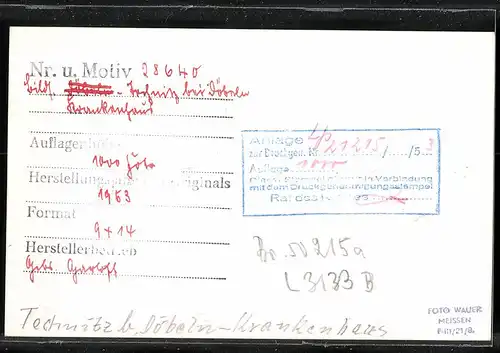 Nr. u. Motiv 28640
Bildf. Döbeln - Technitz bei Döbeln
Krankenhaus
Auflagenhöhe
1000 Stck
Herstellungsjahr Originals
1953
Format
9 x 14
Herstellerbetrieb
Gebr. Garloff
Anlage Lp 21215
zur Druckgen. Nr. / /5 3
Auflage 1000
in Verbindung
mit dem Druckgenehmigungsstempel
Br. 50215a
L 3133 B
Technitz b. Döbeln - Krankenhaus
FOTO WAUER
MEISSEN